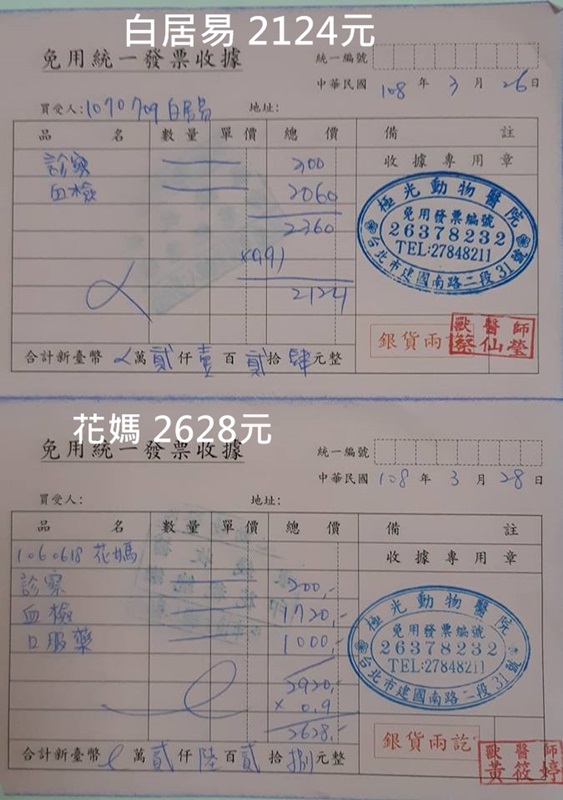 白居易 2124元
免用統一發票收據
統一編號
中華民國 108 年 3 月 26 日
買受人: 1070709 白居易 地址:
品 名 數 量 單 價 總 價 備 註
收據專用章
診察 300
血檢 2060
2360
2124
極光動物醫院
免用發票編號
26378232
TEL:27848211
台北市建國南路二段31號
銀貨兩
獸醫師
蔡仙瑩
合計新臺幣 萬 貳 仟 壹 百 貳 拾 肆 元整
花媽 2628元
免用統一發票收據
統一編號
中華民國 108 年 3 月 28 日
買受人: 地址:
品 名 數 量 單 價 總 價 備 註
收據專用章
1060618 花媽
診察 200.-
血檢 1720.-
口服藥 1000.-
2920.-
× 0.9
2628.-
極光動物醫院
免用發票編號
26378232
TEL:27848211
台北市建國南路二段31號
銀貨兩訖
獸醫師
黃筱婷
合計新臺幣 萬 貳 仟 陸 百 貳 拾 捌 元整